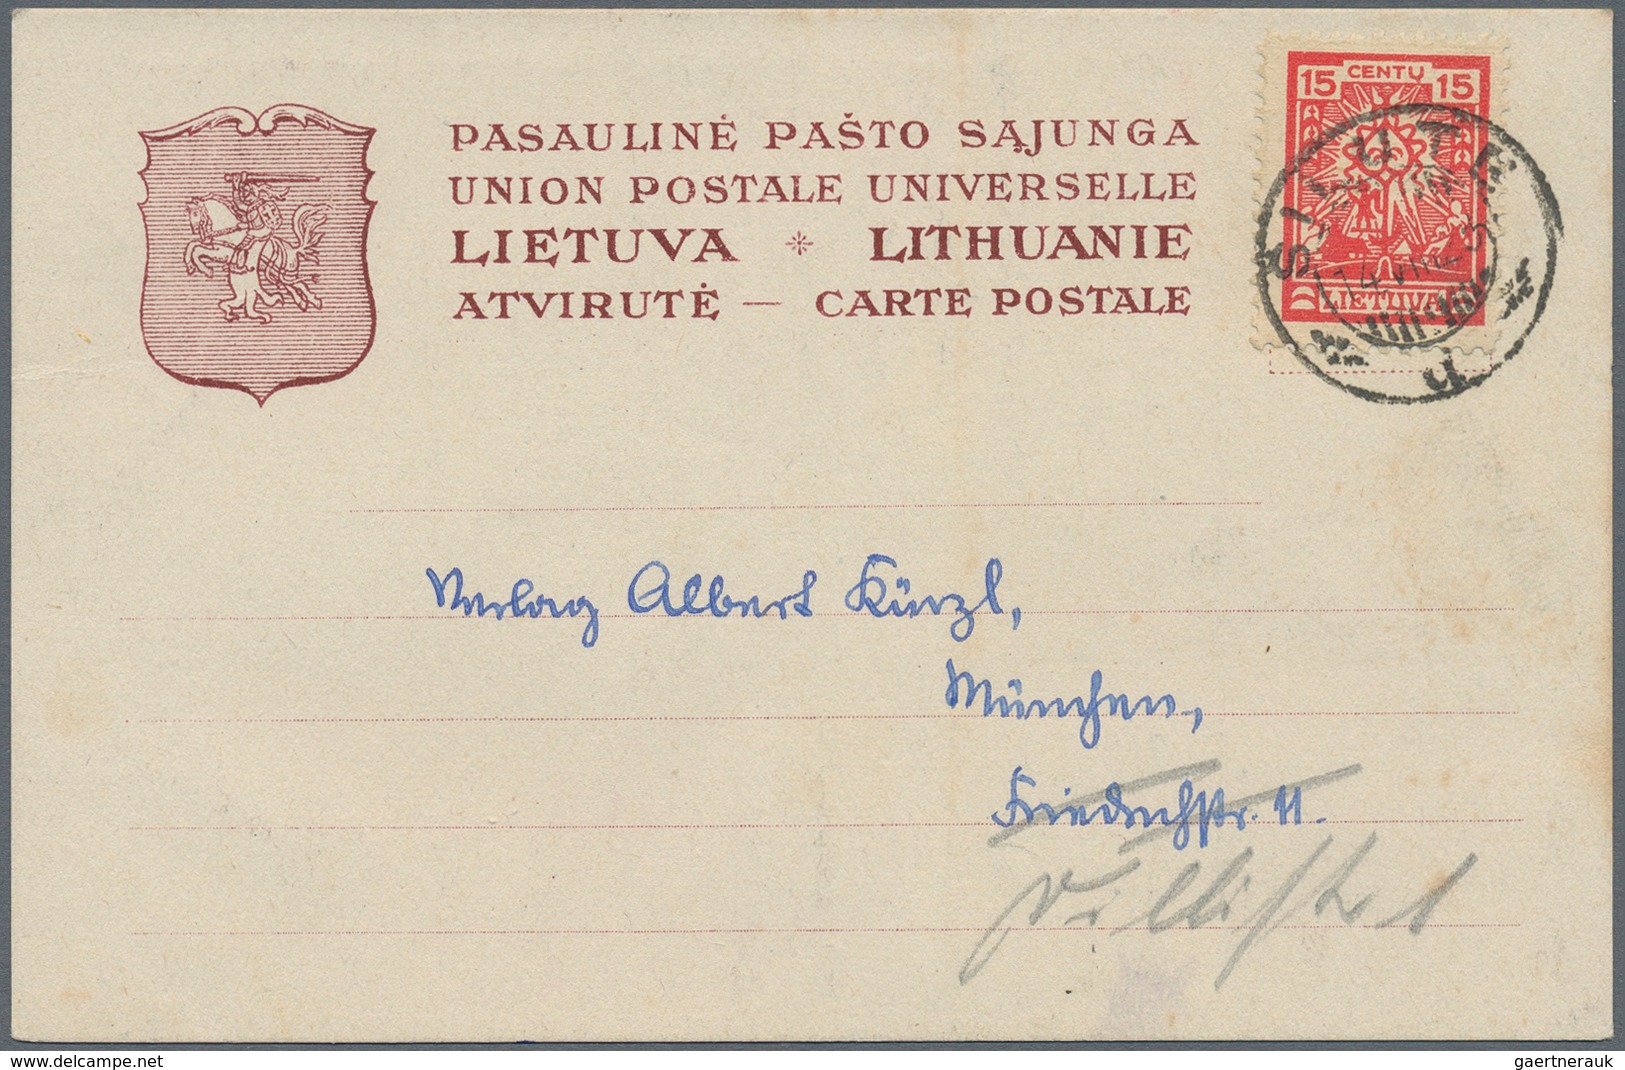 PASAULINĖ PAŠTO SĄJUNGA
UNION POSTALE UNIVERSELLE
LIETUVA * LITHUANIE
ATVIRUTĖ — CARTE POSTALE
15 CENTŲ 15
LIETUVA
ŠILUTĖ
14.VIII.25
d
Verlag Albert Kürzl,
München,
Friedrichstr. 11.
www.delcampe.net
gaertnerauk